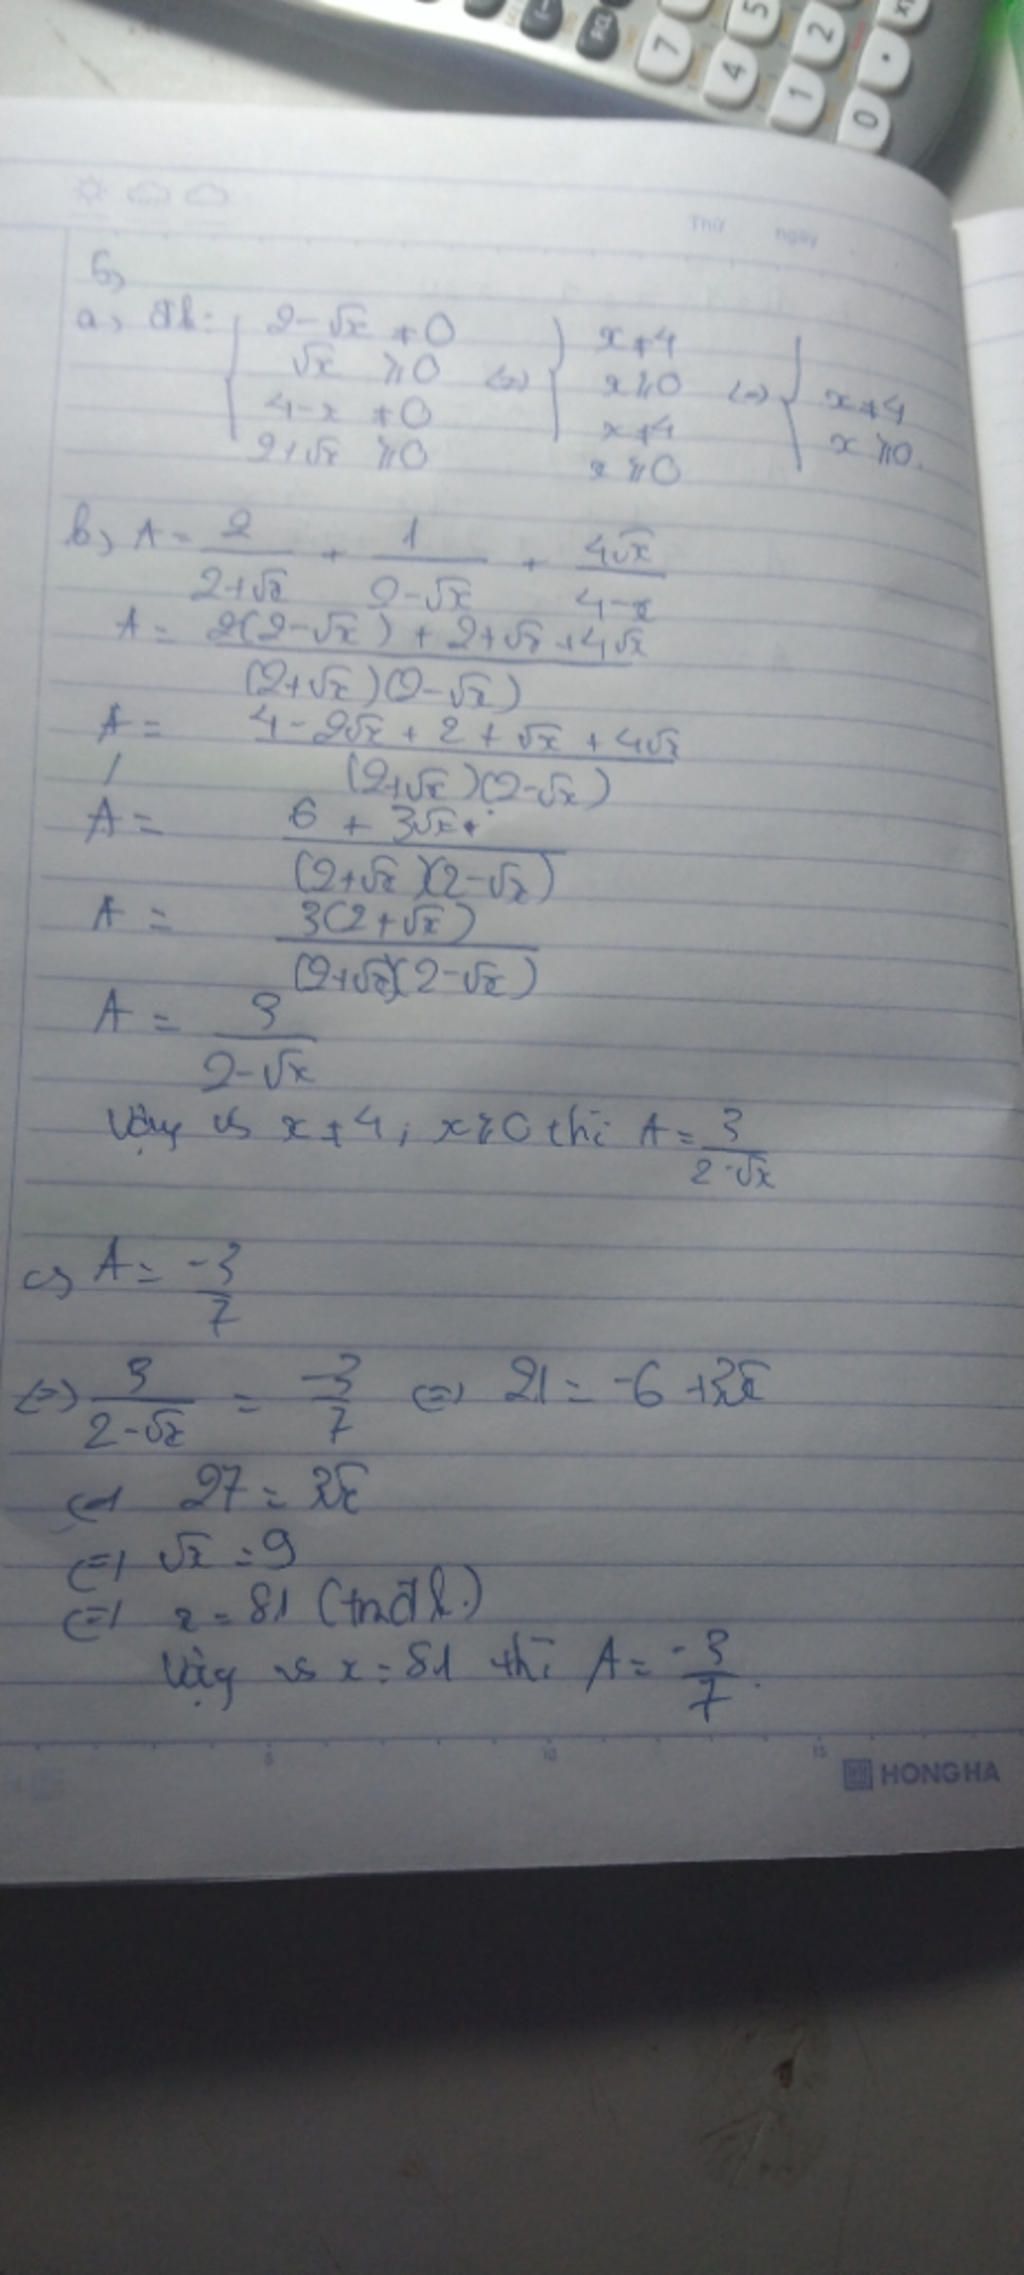 7 4 1 0 5 2 .
Thứ ngày
5,
a, đk: { 2-√x ≠ 0 <=> { x ≠ 4 <=> { x ≠ 4
√x ≥ 0 x ≥ 0 x ≥ 0.
4-x ≠ 0 x ≠ 4
2+√x ≥ 0 x ≥ 0
b, A = 2/(2+√x) + 1/(2-√x) + 4√x/(4-x)
A = (2(2-√x) + 2+√x + 4√x)/((2+√x)(2-√x))
A = (4 - 2√x + 2 + √x + 4√x)/((2+√x)(2-√x))
A = (6 + 3√x)/((2+√x)(2-√x))
A = 3(2+√x)/((2+√x)(2-√x))
A = 3/(2-√x)
Vậy vs x ≠ 4; x ≥ 0 thì A = 3/(2-√x)
c, A = -3/7
<=> 3/(2-√x) = -3/7 <=> 21 = -6 + 3√x
<=> 27 = 3√x
<=> √x = 9
<=> x = 81 (tmđk.)
Vậy vs x = 81 thì A = -3/7.
5 10 15
HONG HA